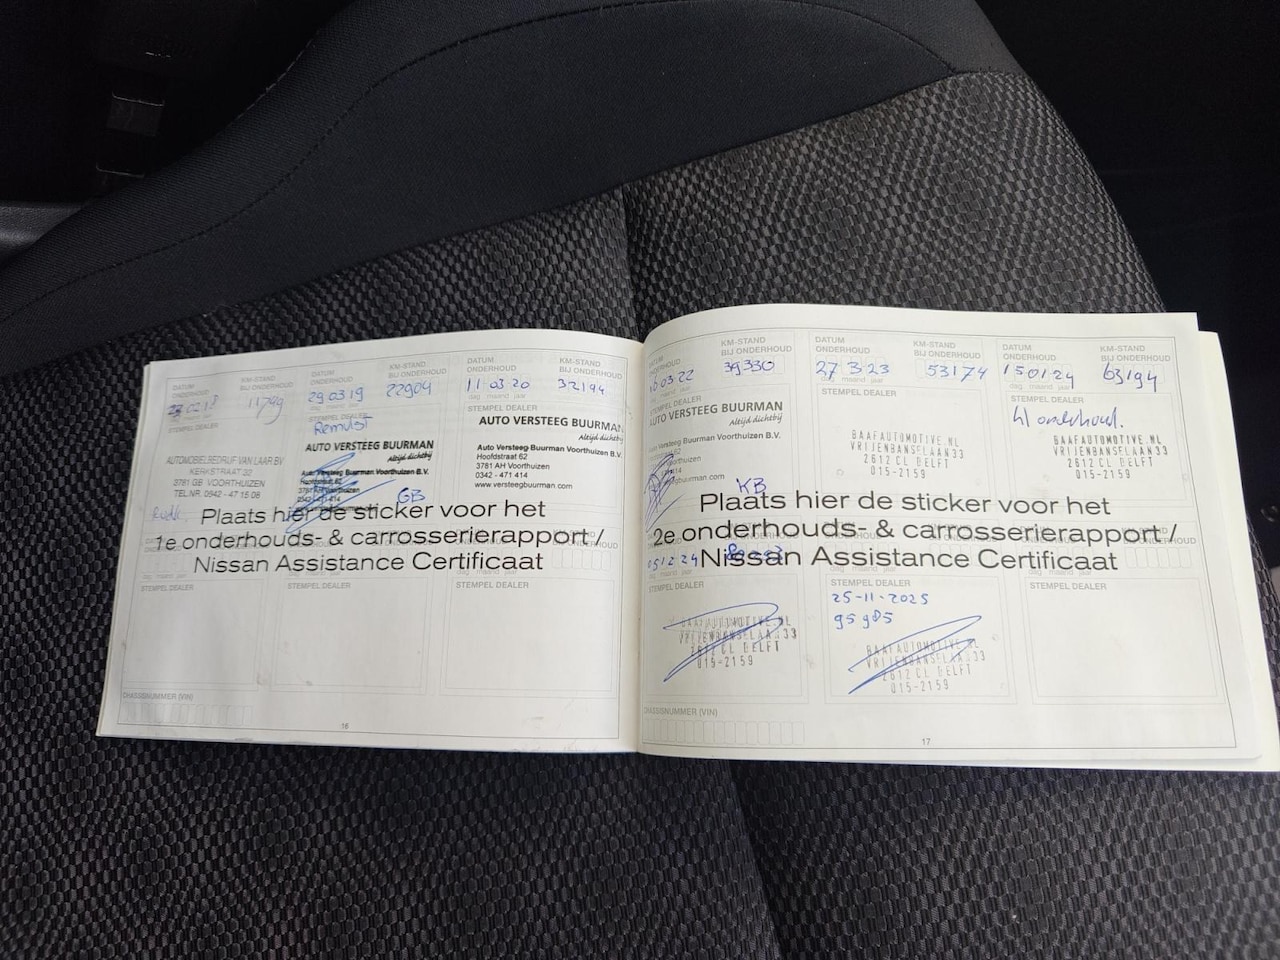 DATUM ONDERHOUD
KM-STAND BIJ ONDERHOUD
02 18
11799
STEMPEL DEALER
AUTOMOBIELBEDRIJF VAN LAAR BV
KERKSTRAAT 22
3781 GB VOORTHUIZEN
TEL.NR. 0342 - 47 15 08
DATUM ONDERHOUD
KM-STAND BIJ ONDERHOUD
29 03 19
22904
dag maand jaar
STEMPEL DEALER
AUTO VERSTEEG BUURMAN
Altijd dichtbij
Auto Versteeg Buurman Voorthuizen B.V.
GB
DATUM ONDERHOUD
KM-STAND BIJ ONDERHOUD
11-03-20
32194
dag maand jaar
STEMPEL DEALER
AUTO VERSTEEG BUURMAN
Altijd dichtbij
Auto Versteeg-Buurman Voorthuizen B.V.
Hoofdstraat 62
3781 AH Voorthuizen
0342 - 471 414
www.versteegbuurman.com
Plaats hier de sticker voor het
1e onderhouds- & carrosserierapport /
Nissan Assistance Certificaat
STEMPEL DEALER
STEMPEL DEALER
STEMPEL DEALER
CHASSISNUMMER (VIN)
16
DATUM ONDERHOUD
KM-STAND BIJ ONDERHOUD
03 22
39330
dag maand jaar
STEMPEL DEALER
AUTO VERSTEEG BUURMAN
Altijd dichtbij
Auto Versteeg Buurman Voorthuizen B.V.
KB
DATUM ONDERHOUD
KM-STAND BIJ ONDERHOUD
27 3 23
53174
dag maand jaar
STEMPEL DEALER
BAAFAUTOMOTIVE.NL
VRIJENBANSELAAN33
2612 CL DELFT
015-2159
DATUM ONDERHOUD
KM-STAND BIJ ONDERHOUD
15 01 24
63194
dag maand jaar
STEMPEL DEALER
onderhoud.
BAAFAUTOMOTIVE.NL
VRIJENBANSELAAN33
2612 CL DELFT
015-2159
Plaats hier de sticker voor het
2e onderhouds- & carrosserierapport /
Nissan Assistance Certificaat
05 12 24
STEMPEL DEALER
BAAFAUTOMOTIVE.NL
VRIJENBANSELAAN33
2612 CL DELFT
015-2159
STEMPEL DEALER
25-11-2025
95985
BAAFAUTOMOTIVE.NL
VRIJENBANSELAAN33
2612 CL DELFT
015-2159
STEMPEL DEALER
CHASSISNUMMER (VIN)
17